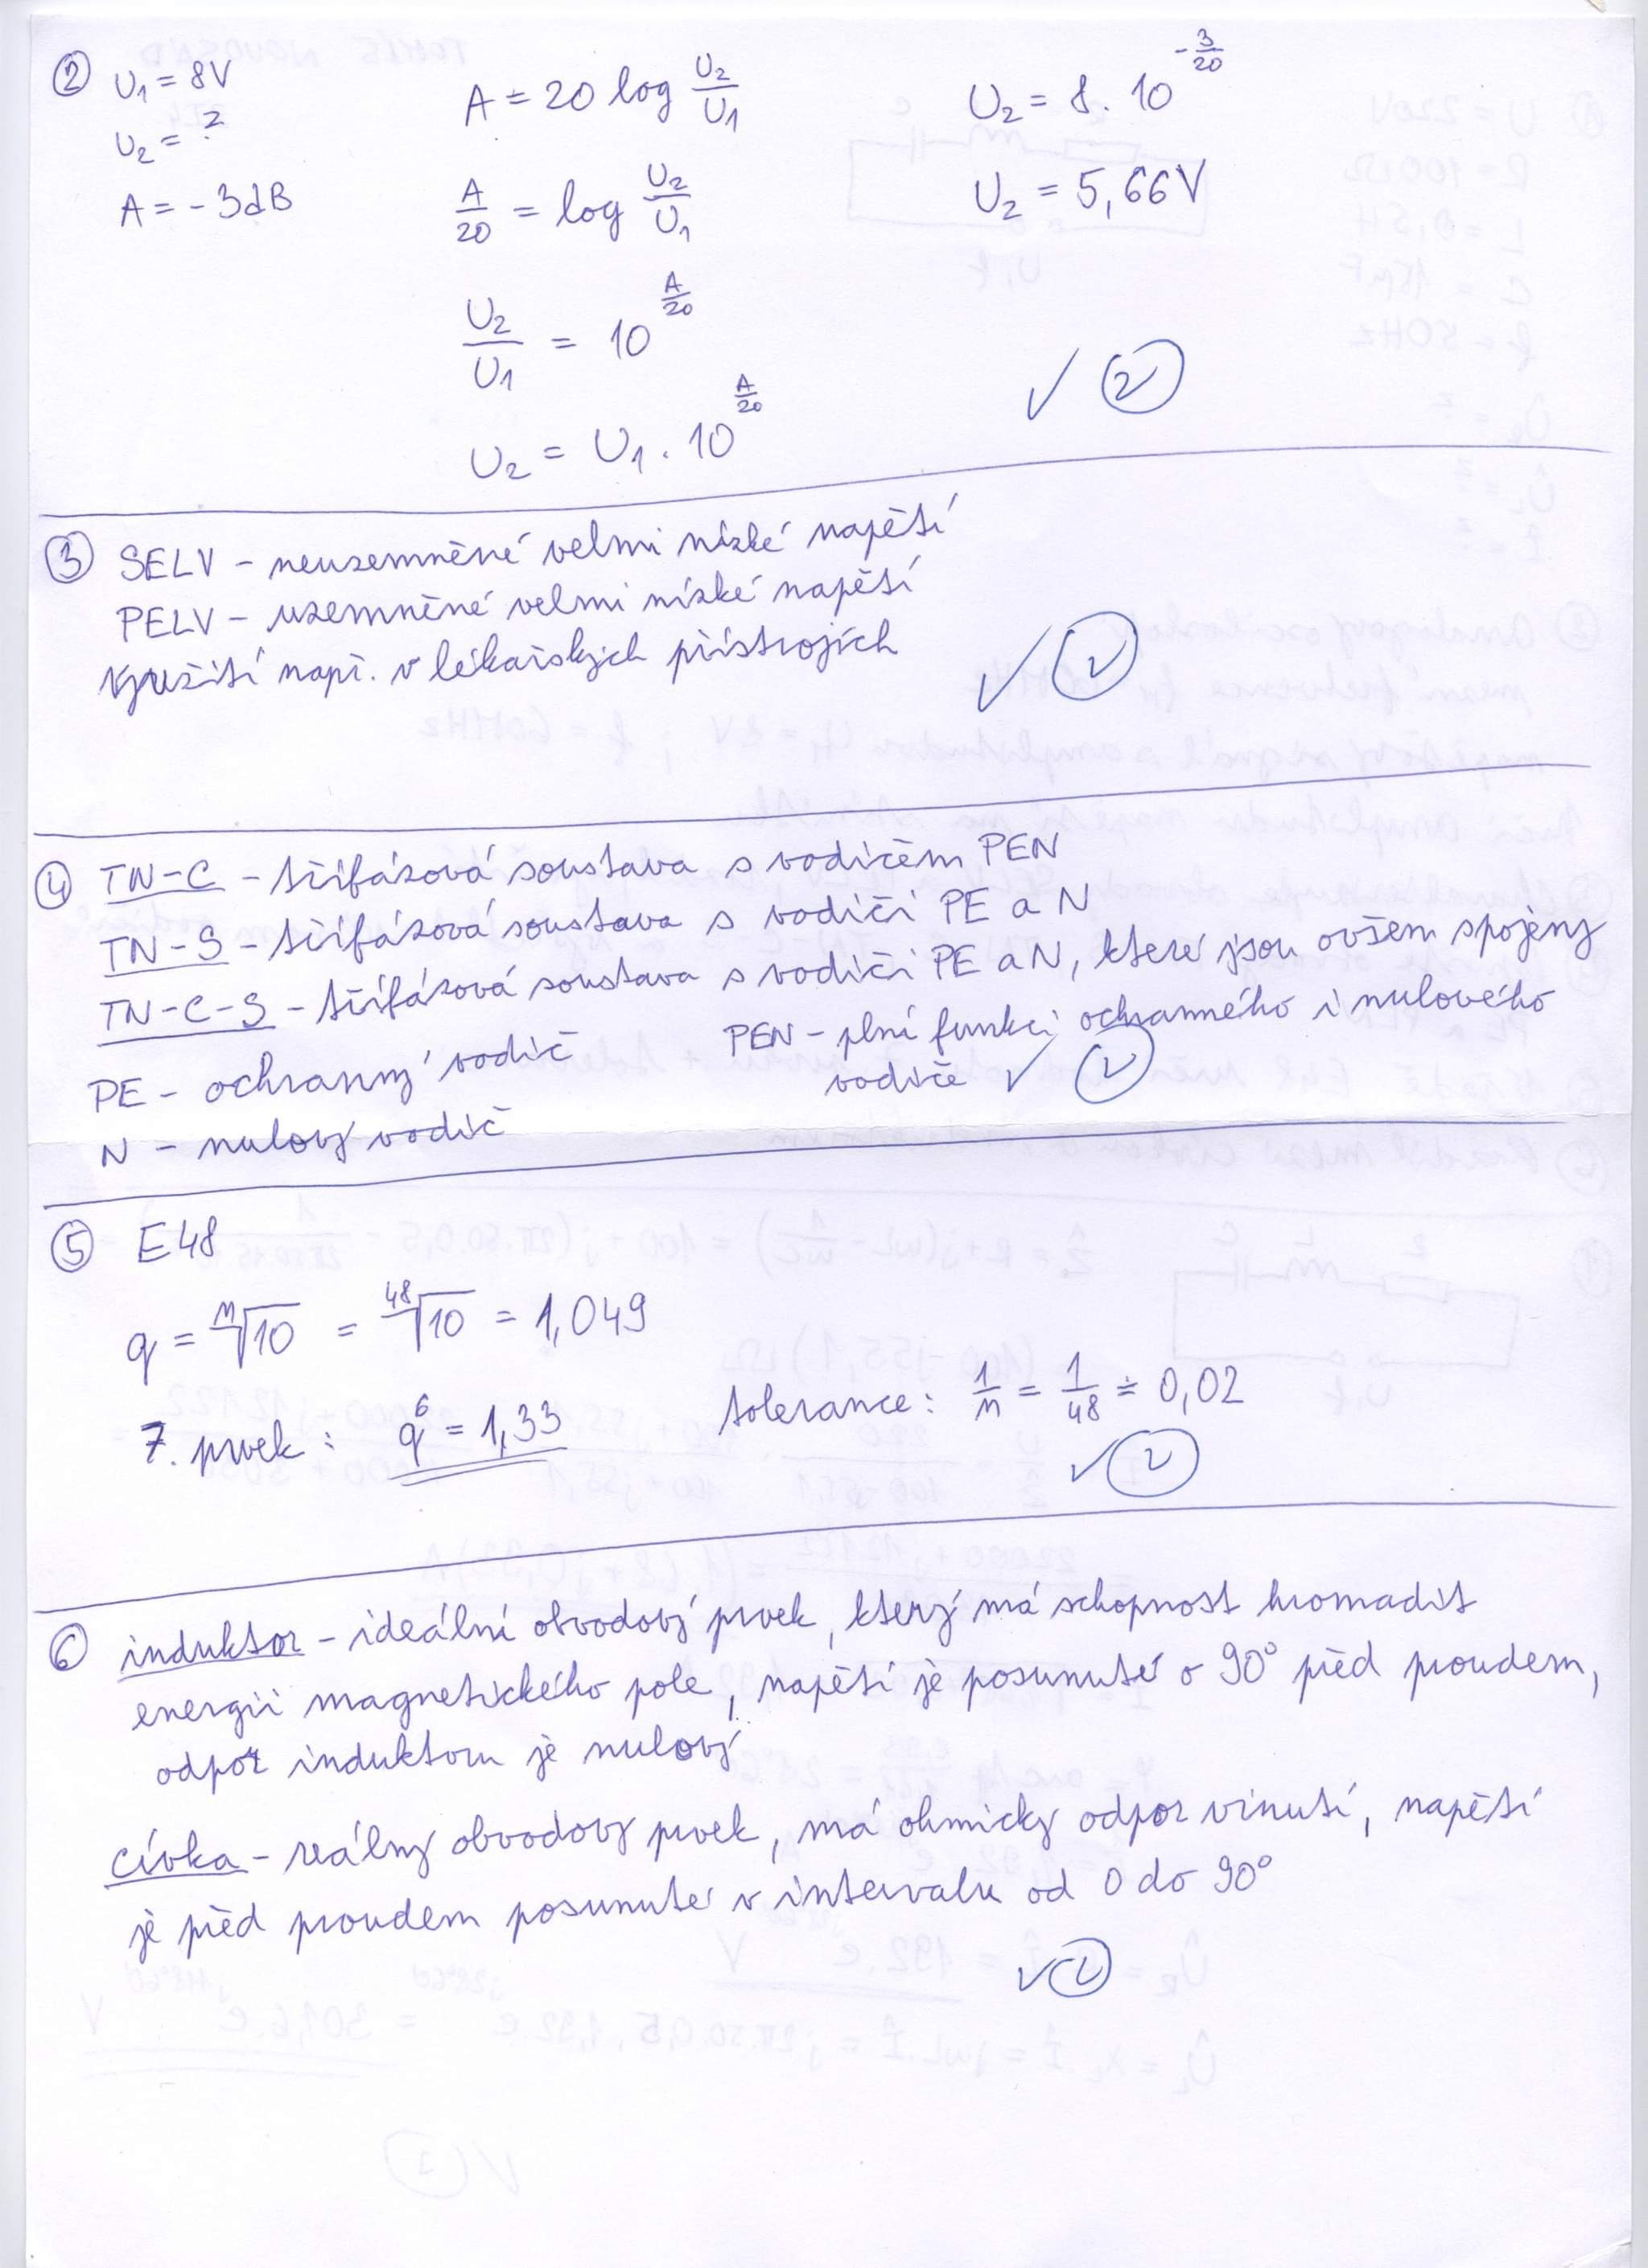 ② U₁ = 8V
U₂ = ?
A = -3dB
A = 20 log U₂/U₁
A/20 = log U₂/U₁
U₂/U₁ = 10^(A/20)
U₂ = U₁ . 10^(A/20)
U₂ = 8 . 10^(-3/20)
U₂ = 5,66V
✓ ②
③ SELV - neuzemněné velmi nízké napětí
PELV - uzemněné velmi nízké napětí
využití např. v lékařských přístrojích
✓ ②
④ TN-C - třífázová soustava s vodičem PEN
TN-S - třífázová soustava s vodiči PE a N
TN-C-S - třífázová soustava s vodiči PE a N, které jsou ovšem spojeny
PE - ochranný vodič
N - nulový vodič
PEN - plní funkci ochranného i nulového
vodiče ✓ ②
⑤ E48
q = ⁿ√10 = ⁴⁸√10 = 1,049
7. prvek : q⁶ = 1,33
tolerance : 1/n = 1/48 ≐ 0,02
✓ ②
⑥ induktor - ideální obvodový prvek, který má schopnost hromadit
energii magnetického pole, napětí je posunuté o 90° před proudem,
odpor induktoru je nulový
cívka - reálný obvodový prvek, má ohmický odpor vinutí, napětí
je před proudem posunuté v intervalu od 0 do 90°
✓ ②